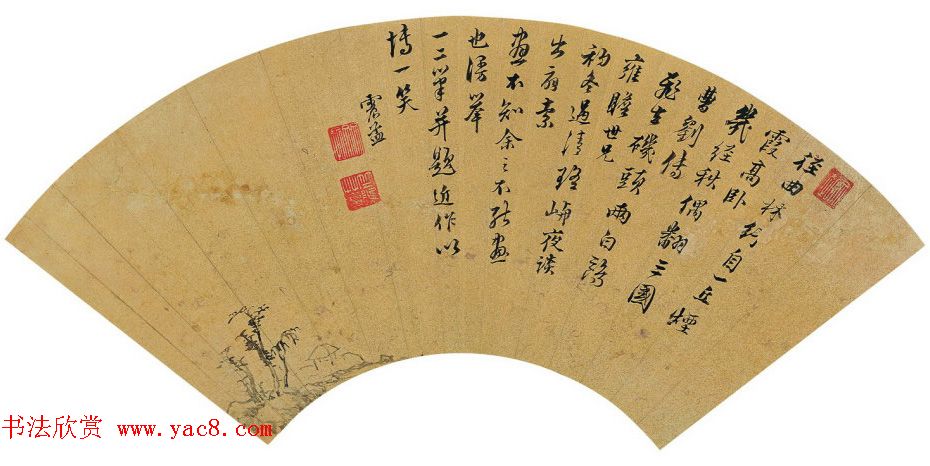 徑曲林自一丘煙
霞高臥
幾經秋偶翻三國
曹劉傳
飛磯頭兩白鷗
雍瞻世兄
初冬過清瑤嶼夜談
出扇索
畫不知余之不能畫
也漫舉
一二筆并題近作以
博一笑
书法欣赏 www.yac8.com